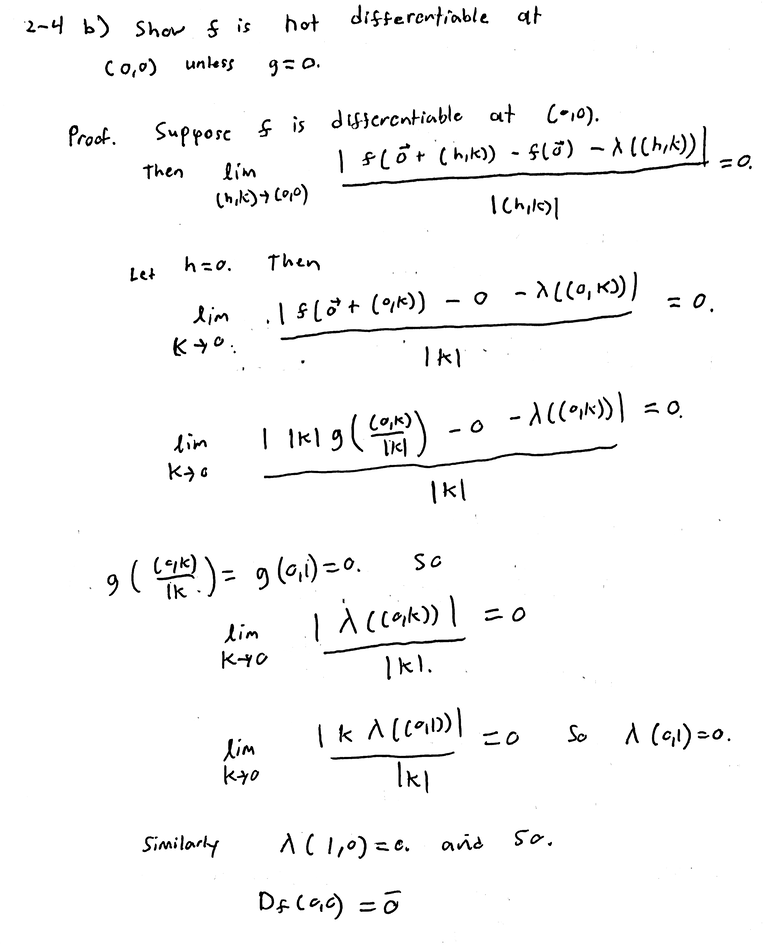 2-4 b) Show f is not differentiable at
(0,0) unless g=0.
Proof. Suppose f is differentiable at (0,0).
Then lim (h,k)→(0,0) | f(0⃗ + (h,k)) - f(0⃗) - λ((h,k)) | / |(h,k)| = 0.
Let h=0. Then
lim k→0 | f(0⃗ + (0,k)) - 0 - λ((0,k)) | / |k| = 0.
lim k→0 | |k| g( (0,k) / |k| ) - 0 - λ((0,k)) | / |k| = 0.
g( (0,k) / |k ) = g(0,1)=0. So
lim k→0 | λ((0,k)) | / |k|. = 0
lim k→0 | k λ((0,1)) | / |k| = 0 So λ(0,1)=0.
Similarly λ(1,0)=0. and so.
Df(0,0) = 0̄